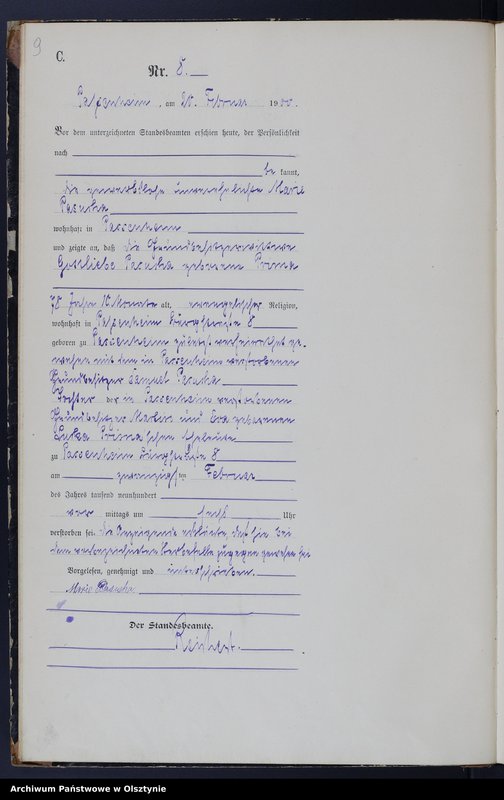 9
C.
Nr. 8.
Passenheim, am 20. Februar 1900.
Vor dem unterzeichneten Standesbeamten erschien heute, der Persönlichkeit
nach
be kannt,
die gewerblose unverehelichte Marie
Pasucha
wohnhaft in Passenheim
und zeigte an, daß die Grundbesitzerwittwe
Gottliebe Pasucha geborene Prisma
78 Jahre 10 Monate alt, evangelischer Religion,
wohnhaft in Passenheim Burgstraße 8
geboren zu Passenheim zuletzt verheirathet ge-
wesen mit dem in Passenheim verstorbenen
Grundbesitzer Samuel Pasucha
Tochter der in Passenheim verstorbenen
Grundbesitzer Martin und Eva geborenen
Prisma'schen Eheleute
zu Passenheim Burgstraße 8
am zwanzigsten Februar
des Jahres tausend neunhundert
vor mittags um sechs Uhr
verstorben sei. Die Anzeigende erklärte, daß sie bei
dem vorbezeichneten Sterbefalle zugegen gewesen sei
Vorgelesen, genehmigt und unterschrieben.
Marie Pasucha
Der Standesbeamte.
Archiwum Państwowe w Olsztynie